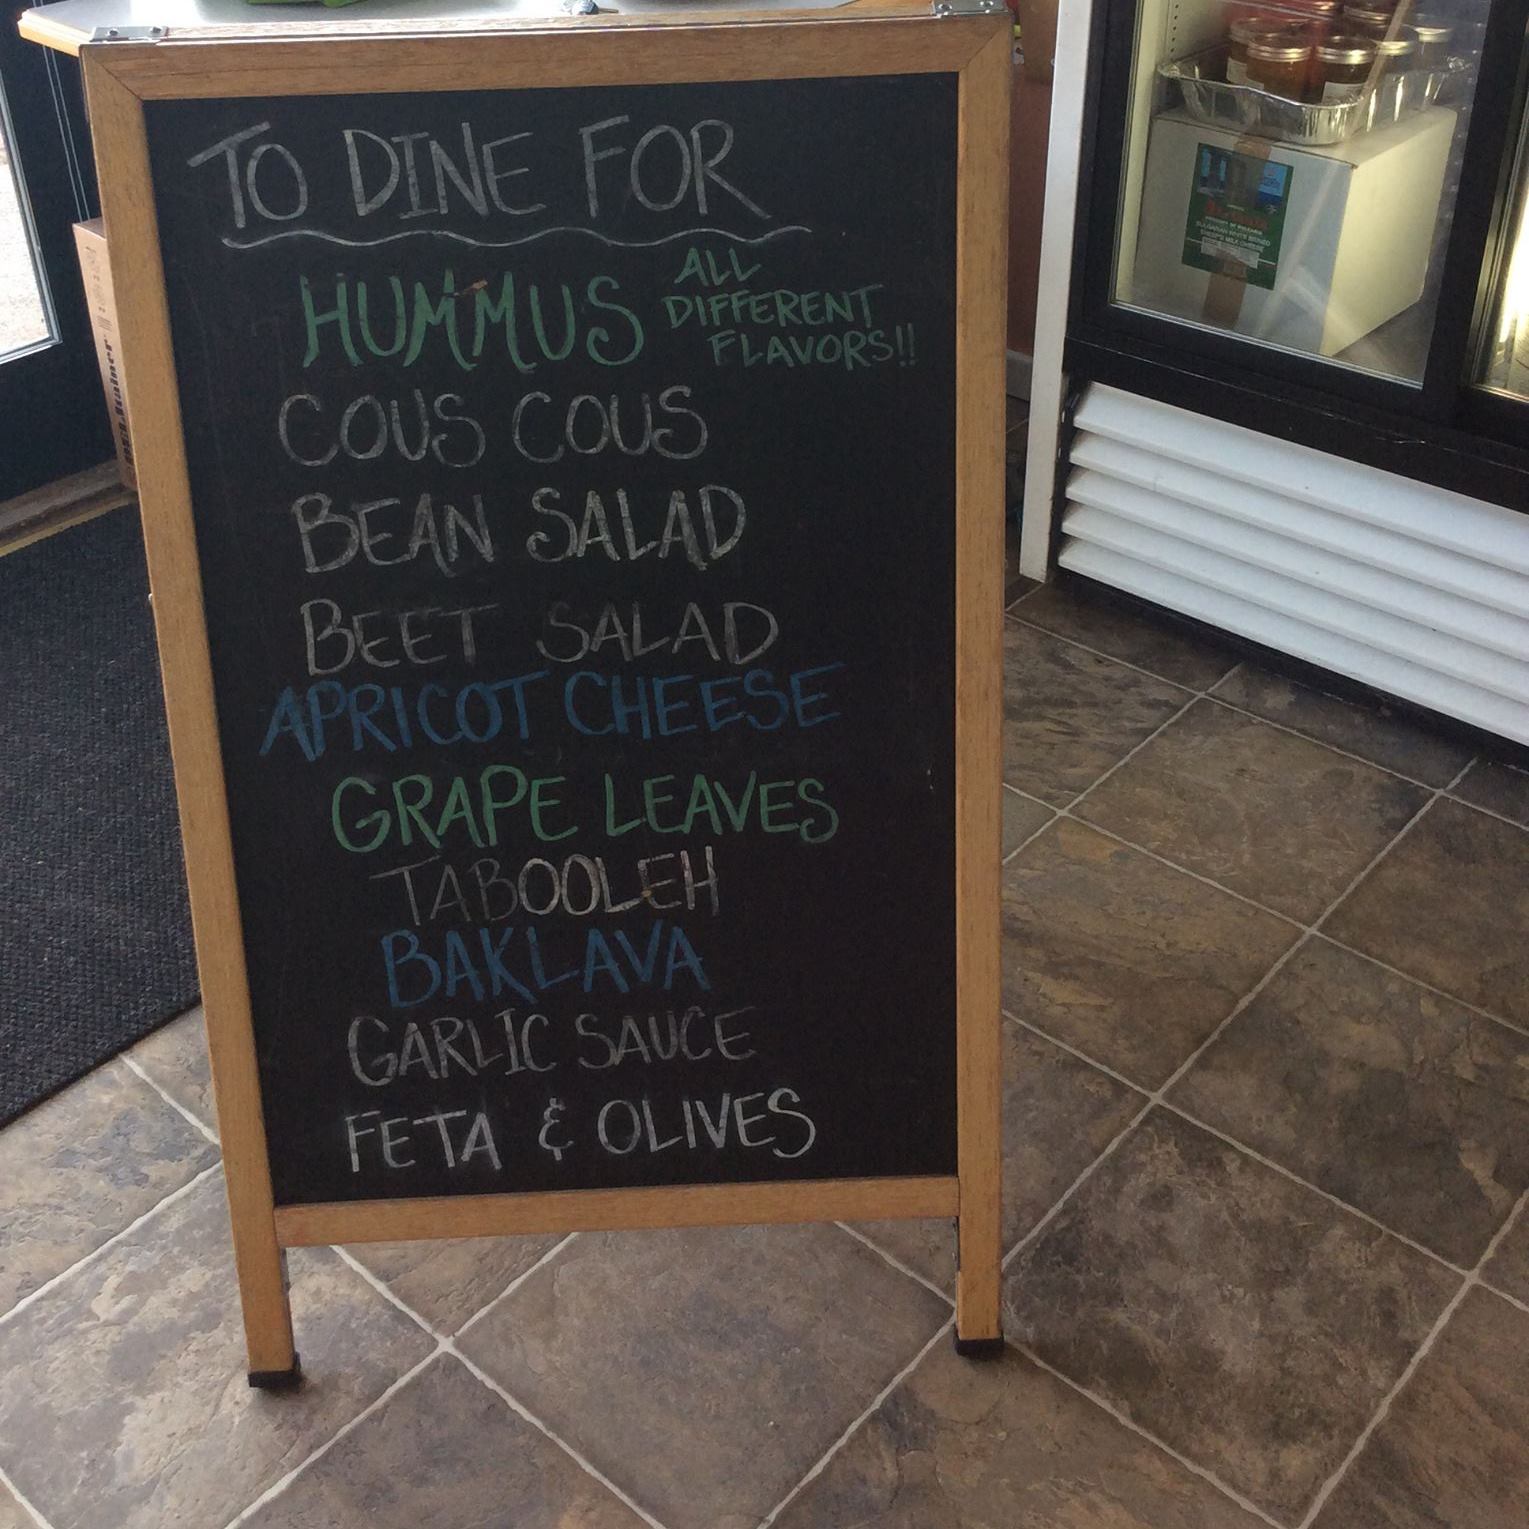 TO DINE FOR
HUMMUS
ALL
DIFFERENT
FLAVORS!!
COUS COUS
BEAN SALAD
BEET SALAD
APRICOT CHEESE
GRAPE LEAVES
TABOOLEH
BAKLAVA
GARLIC SAUCE
FETA & OLIVES